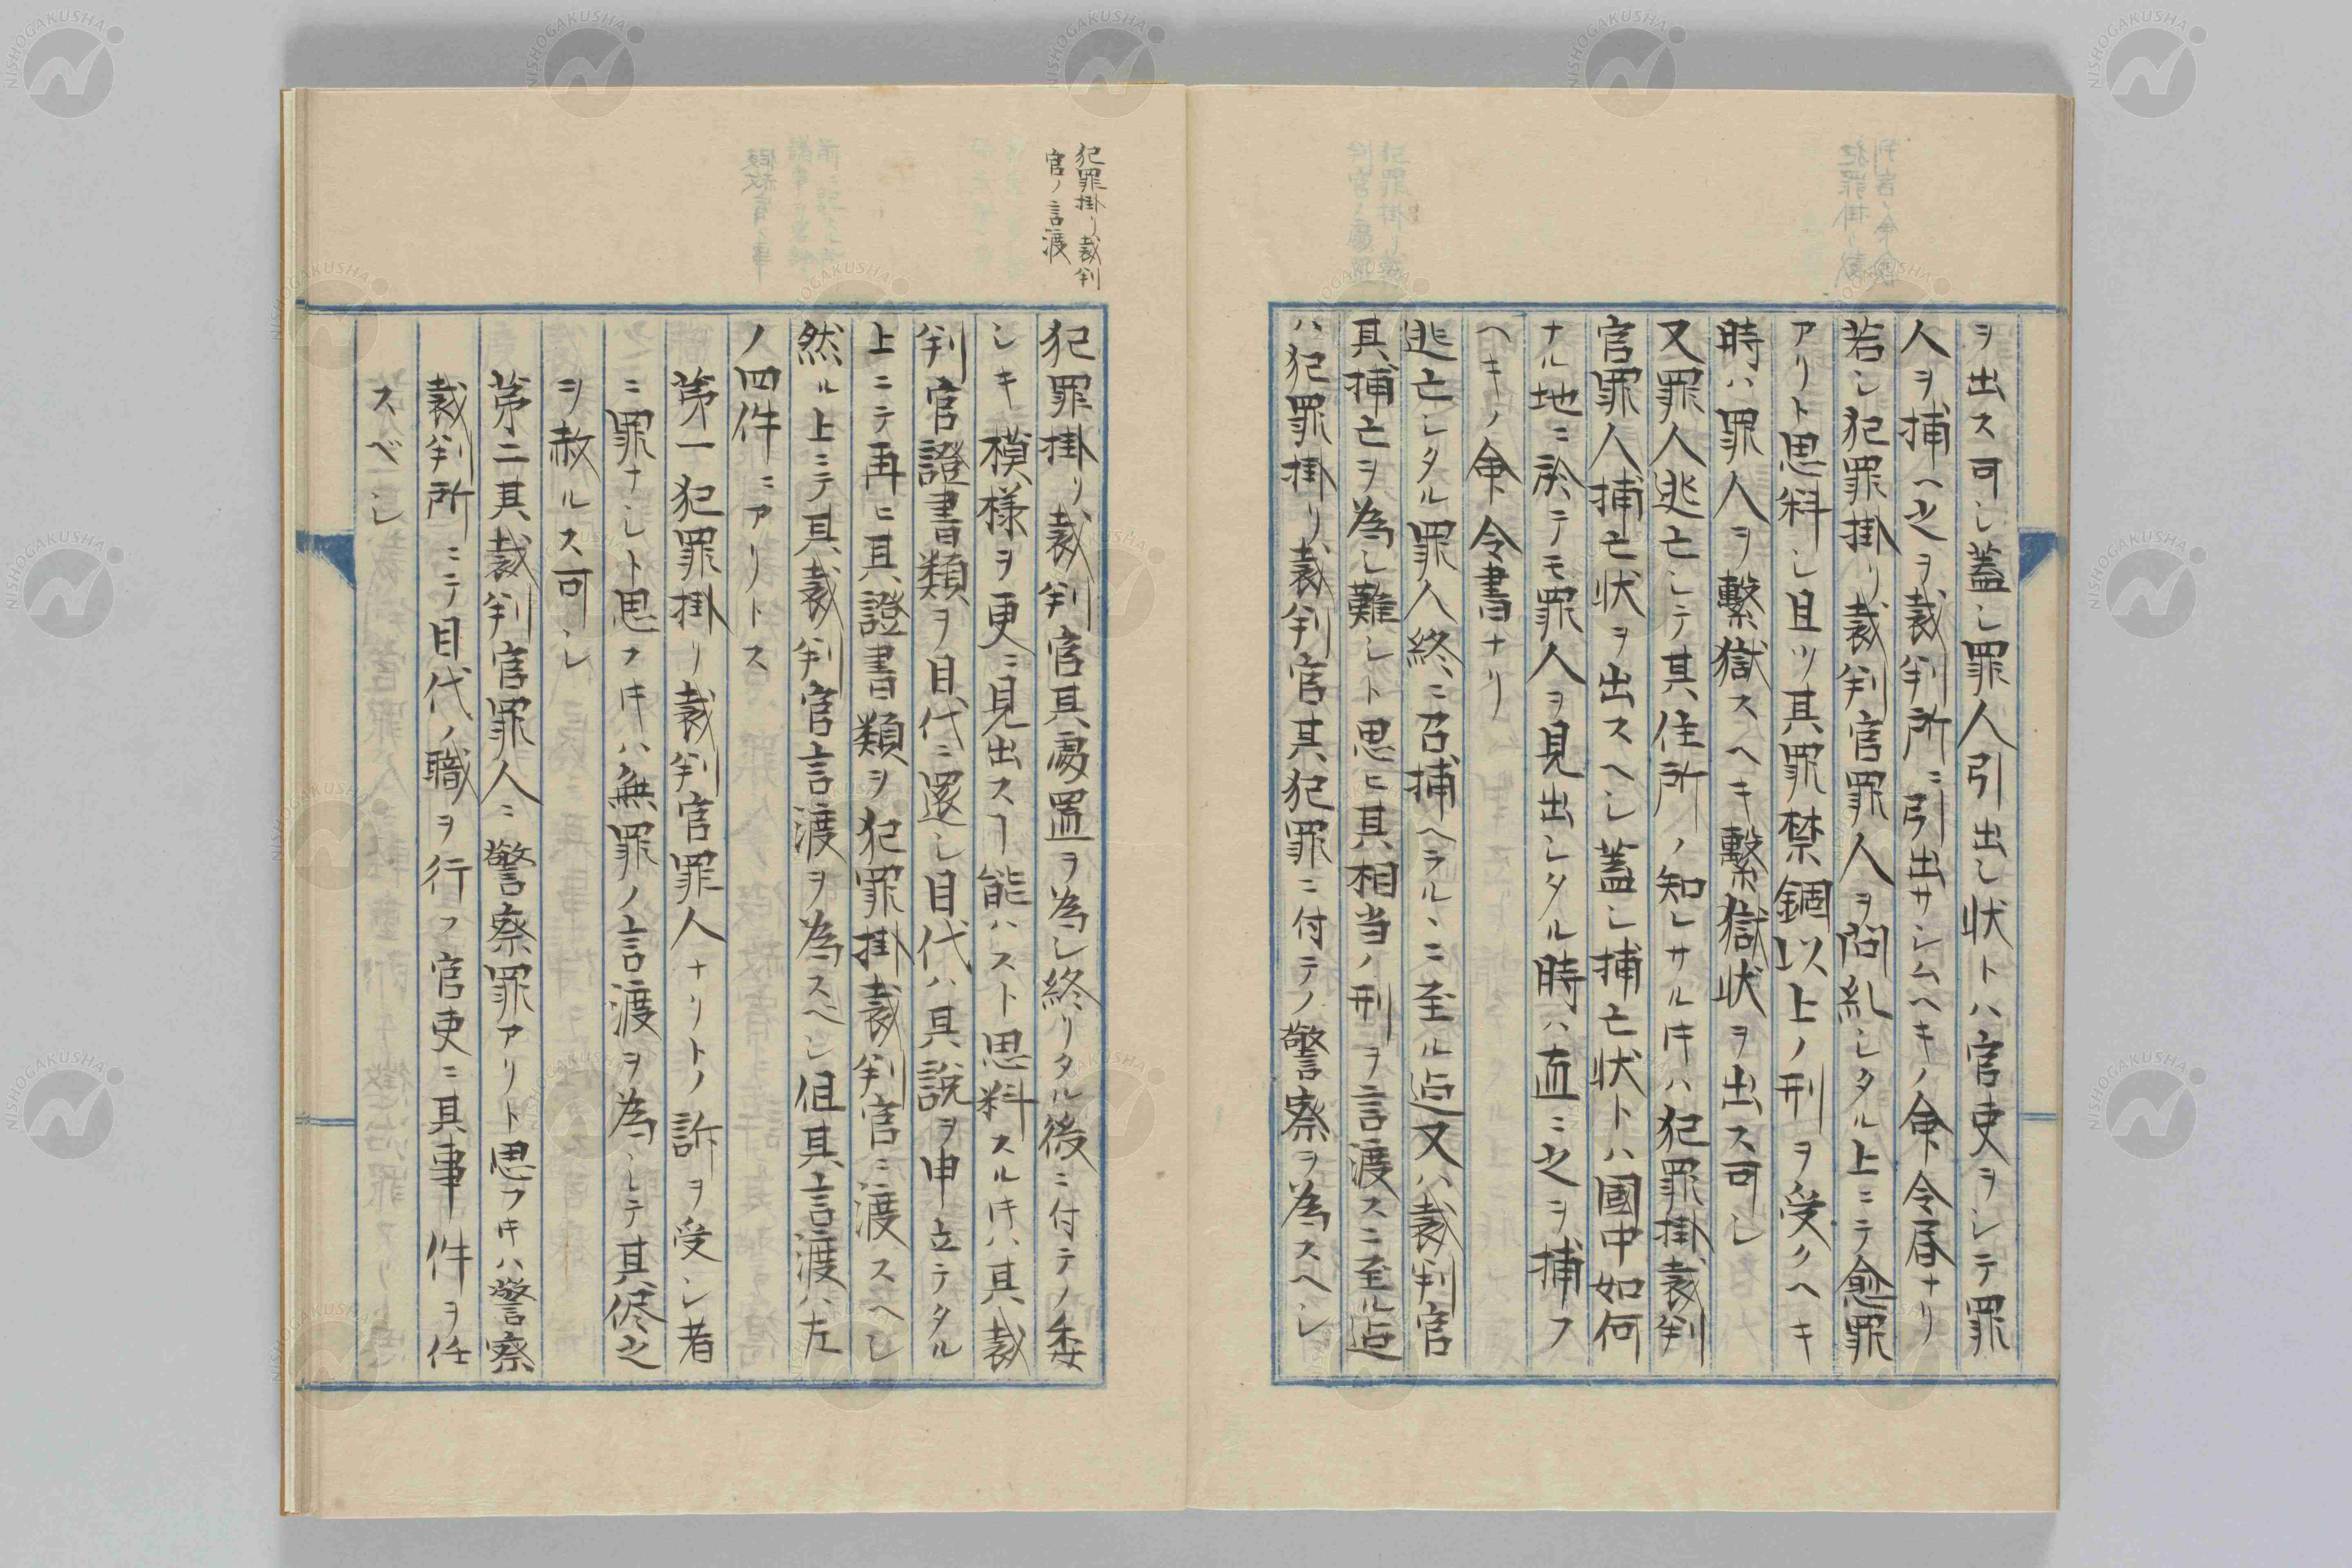 ヲ出ス可シ蓋シ罪人引出シ状トハ官吏ヲシテ罪
人ヲ捕ヘ之ヲ裁判所ニ引出サシムヘキノ命令書ナリ
若シ犯罪掛リ裁判官罪人ヲ問糺シタル上ニテ愈罪
アリト思料シ且ツ其罪禁錮以上ノ刑ヲ受クヘキ
時ハ罪人ヲ繫獄スヘキ繫獄状ヲ出ス可シ
又罪人逃亡シテ其住所ノ知レサルキハ犯罪掛裁判
官罪人捕亡状ヲ出スヘシ蓋シ捕亡状トハ國中如何
ナル地ニ於テモ罪人ヲ見出シタル時ハ直ニ之ヲ捕フ
ヘキノ命令書ナリ
逃亡シタル罪人終ニ召捕ヘラルヽニ至ル迠又ハ裁判官
其捕亡ヲ為シ難シト思ヒ其相当ノ刑ヲ言渡スニ至ル迠
ハ犯罪掛リ裁判官其犯罪ニ付テノ警察ヲ為スヘシ
犯罪掛リ裁判
官ノ言渡
犯罪掛リ裁判官其處置ヲ為シ終リタル後ニ付テノ委
シキ模様ヲ更ニ見出スヿ能ハスト思料スルキハ其裁
判官證書類ヲ目代ニ還シ目代ハ其説ヲ申立テタル
上ニテ再ヒ其證書類ヲ犯罪掛裁判官ニ渡スヘシ
然ル上ニテ其裁判官言渡ヲ為スヘシ但其言渡ハ左
ノ四件ニアリトス
第一犯罪掛リ裁判官罪人ナリトノ訴ヲ受シ者
ニ罪ナシト思フキハ無罪ノ言渡ヲ為シテ其侭之
ヲ赦ルス可シ
第二其裁判官罪人ニ警察罪アリト思フキハ警察
裁判所ニテ目代ノ職ヲ行フ官吏ニ其事件ヲ任
スベシ
NISHOGAKUSHA